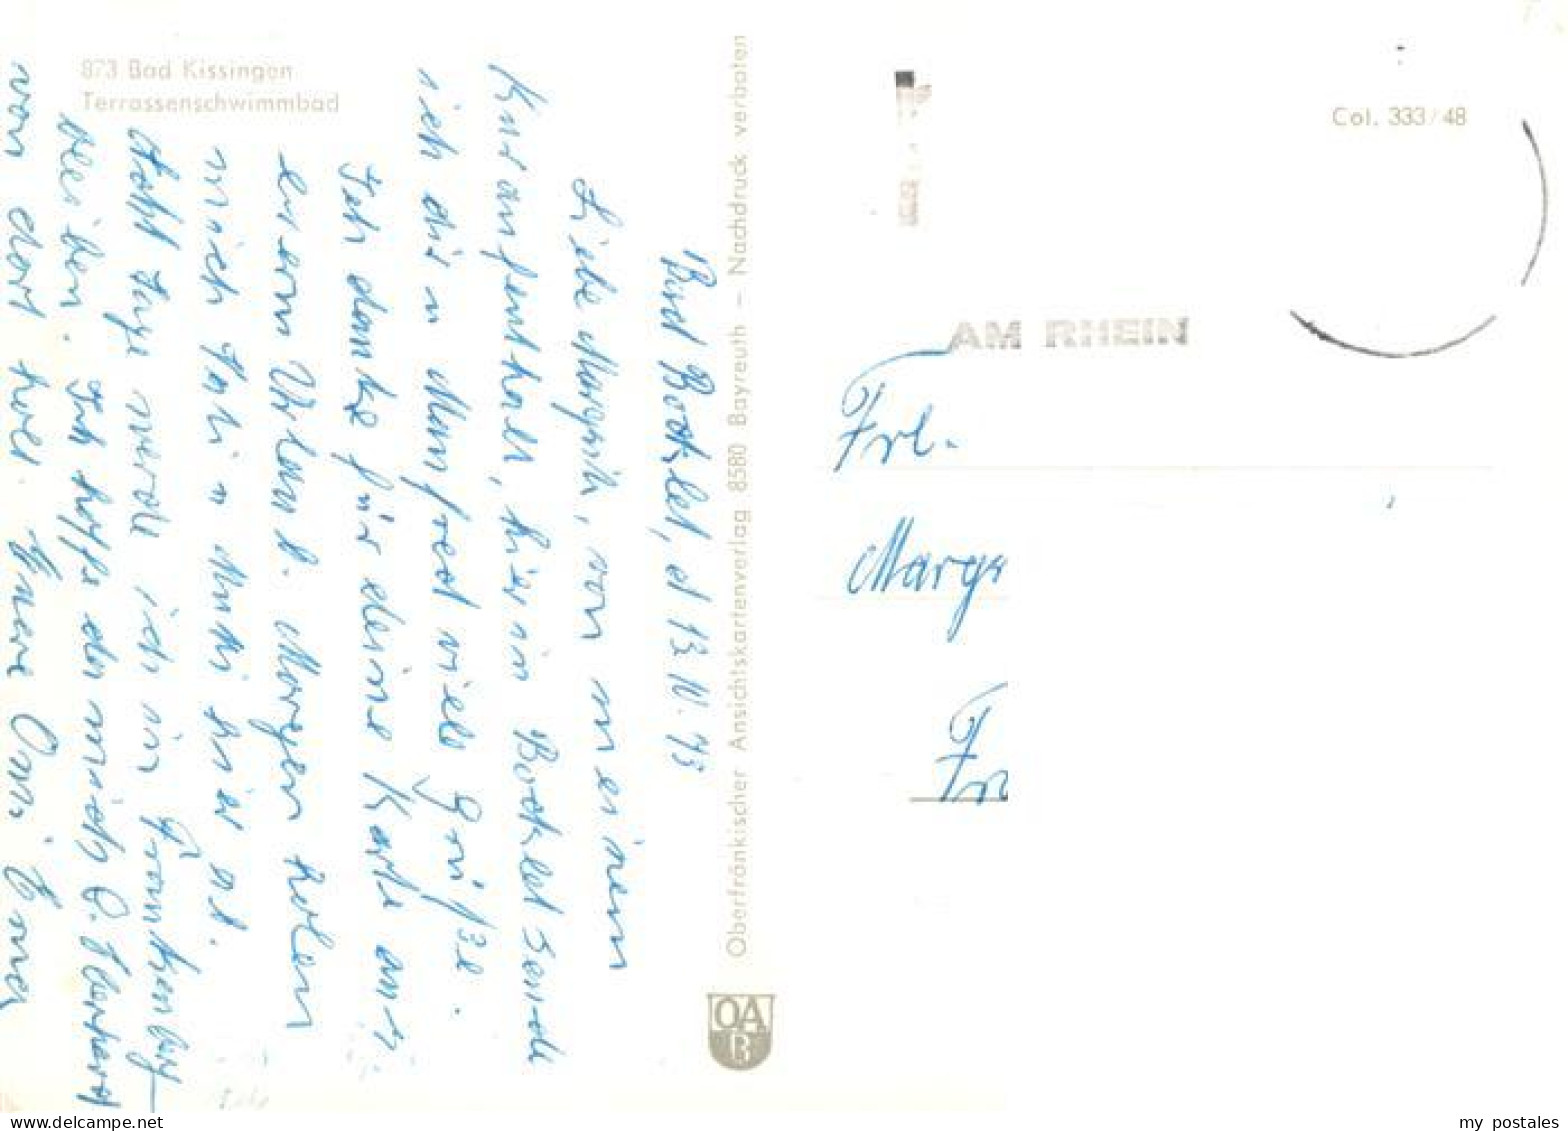 873 Bad Kissingen
Terrassenschwimmbad
Bad Bocklet, d 13 IV. 73
Liebe Margrit, von meinem
Kuraufenthalt, hier in Bocklet sende
ich dir u Manfred viele Grüße.
Ich danke für deine Karte aus
eurem Urlaub. Morgen holen
mich u hier ab.
Acht Tage werde ich in
bleiben. Ich hoffe das mich O.
von dort holt. Eure Omi
Oberfränkischer Ansichtskartenverlag 8580 Bayreuth – Nachdruck verboten
OA
B
Col. 333/48
AM RHEIN
Frl.
Margr
Fr
Delcampe.net
my_postales